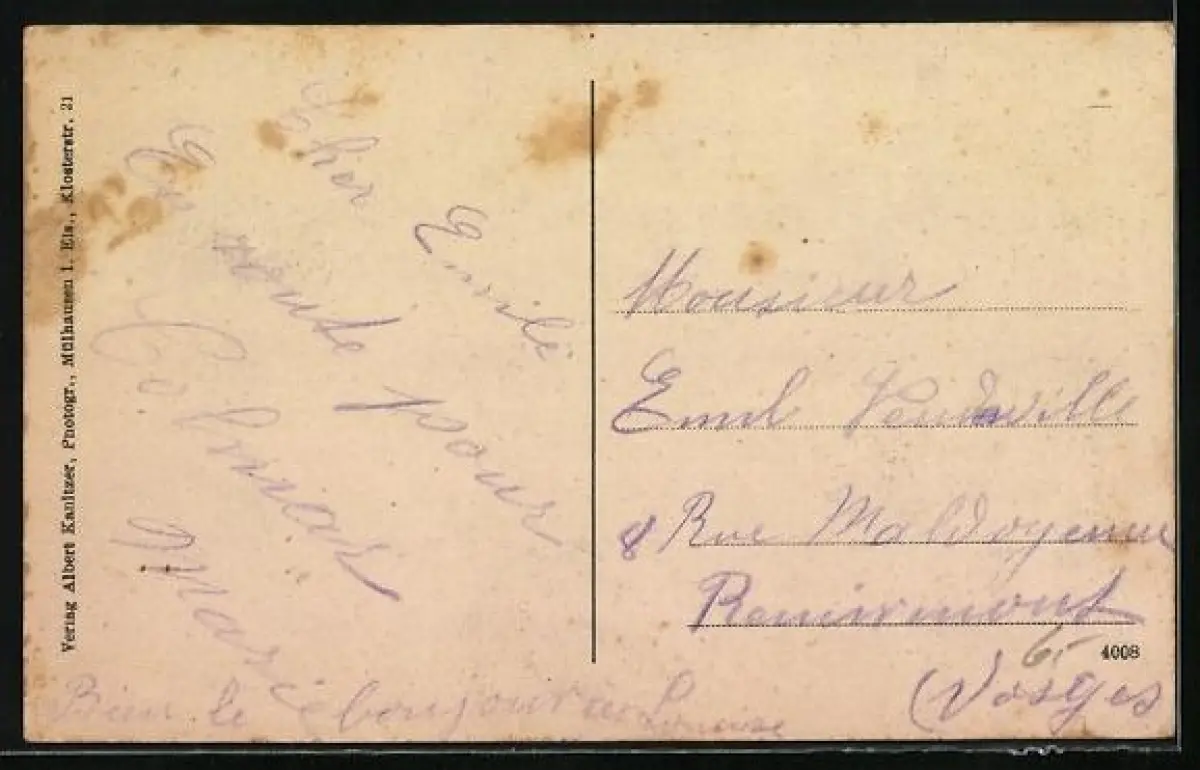 Verlag Albert Kanitzer, Photogr., Mülhausen i. Els., Klosterstr. 21
Cher Emile
En route pour
Colmar
Marie
Bien le bonjour a Louise
Monsieur
Emil
8 Rue Maldoyenne
Remiremont
(Vosges
6.-
4008